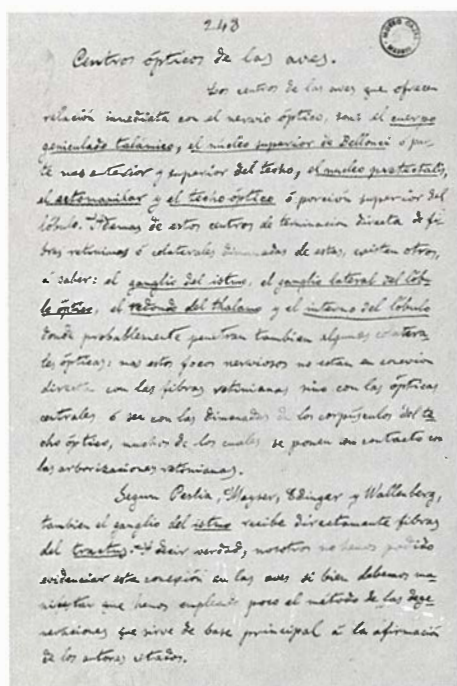 243
MUSEO CAJAL
MADRID
Centros ópticos de las aves.
Los centros de las aves que ofrecen
relación inmediata con el nervio óptico, son: el cuerpo
geniculado talámico, el nucleo superior de Bellonci ó par-
te mas anterior y superior del techo, el nucleo pretectalis,
el ectomamilar y el techo óptico ó porción superior del
lóbulo. Ademas de estos centros de terminacion directa de fi-
bras retinianas ó colaterales dimanadas de estas, existen otros,
á saber: el ganglio del istmo, el ganglio lateral del lóbu-
lo óptico, el redondo del thalamo y el interno del lóbulo
donde probablemente penetran tambien algunas colatera-
les ópticas; mas estos focos nerviosos no estan en conexion
directa con las fibras retinianas sino con las ópticas
centrales ó sea con las dimanadas de los corpúsculos del te-
cho óptico, muchos de los cuales se ponen en contacto con
las arborizaciones retinianas.
Segun Perlia, Mayser, Edinger y Wallenberg,
tambien el ganglio del istmo recibe directamente fibras
del tractus. A decir verdad, nosotros no hemos podido
evidenciar esta conexión en las aves si bien debemos ma-
nifestar que hemos empleado poco el método de las dege-
neraciones que sirve de base principal á la afirmación
de los autores citados.